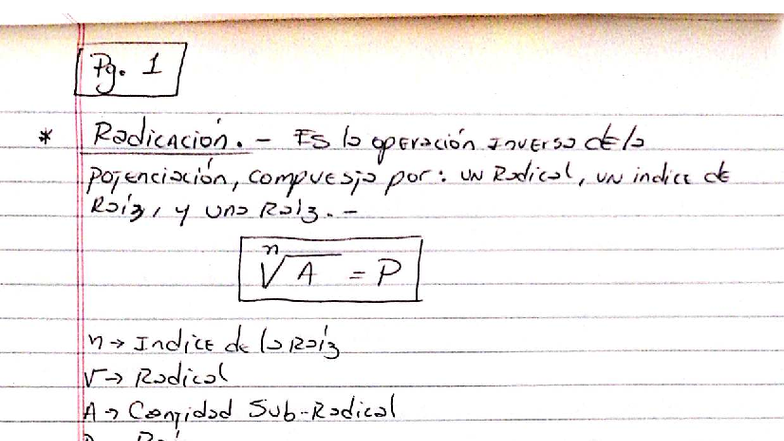 Pg. 1
* Radicación. - Es la operación inversa de la
potenciación, compuesta por: un Radical, un indice de
Raíz, y una Raíz. -
n√A = P
n → Indice de la Raíz
√ → Radical
A → Cantidad Sub-Radical